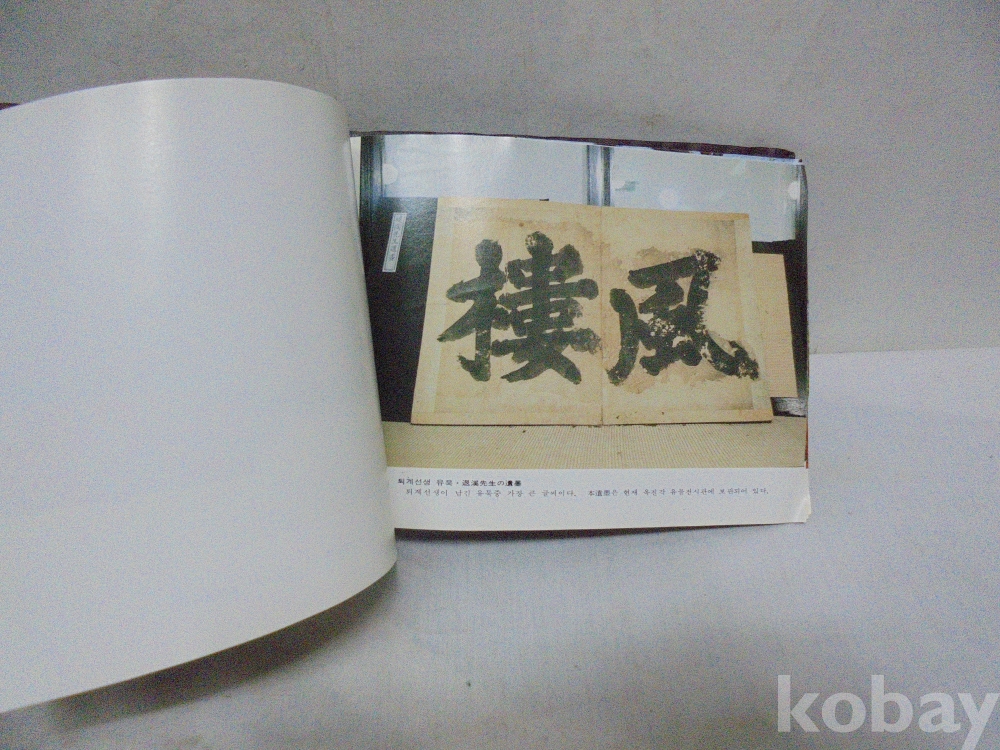 樓風
퇴계선생 유묵・退溪先生の遺墨
퇴계선생이 남긴 유묵중 가장 큰 글씨이다. 本遺墨은 현재 유물전시관에 보관되어 있다.
kobay